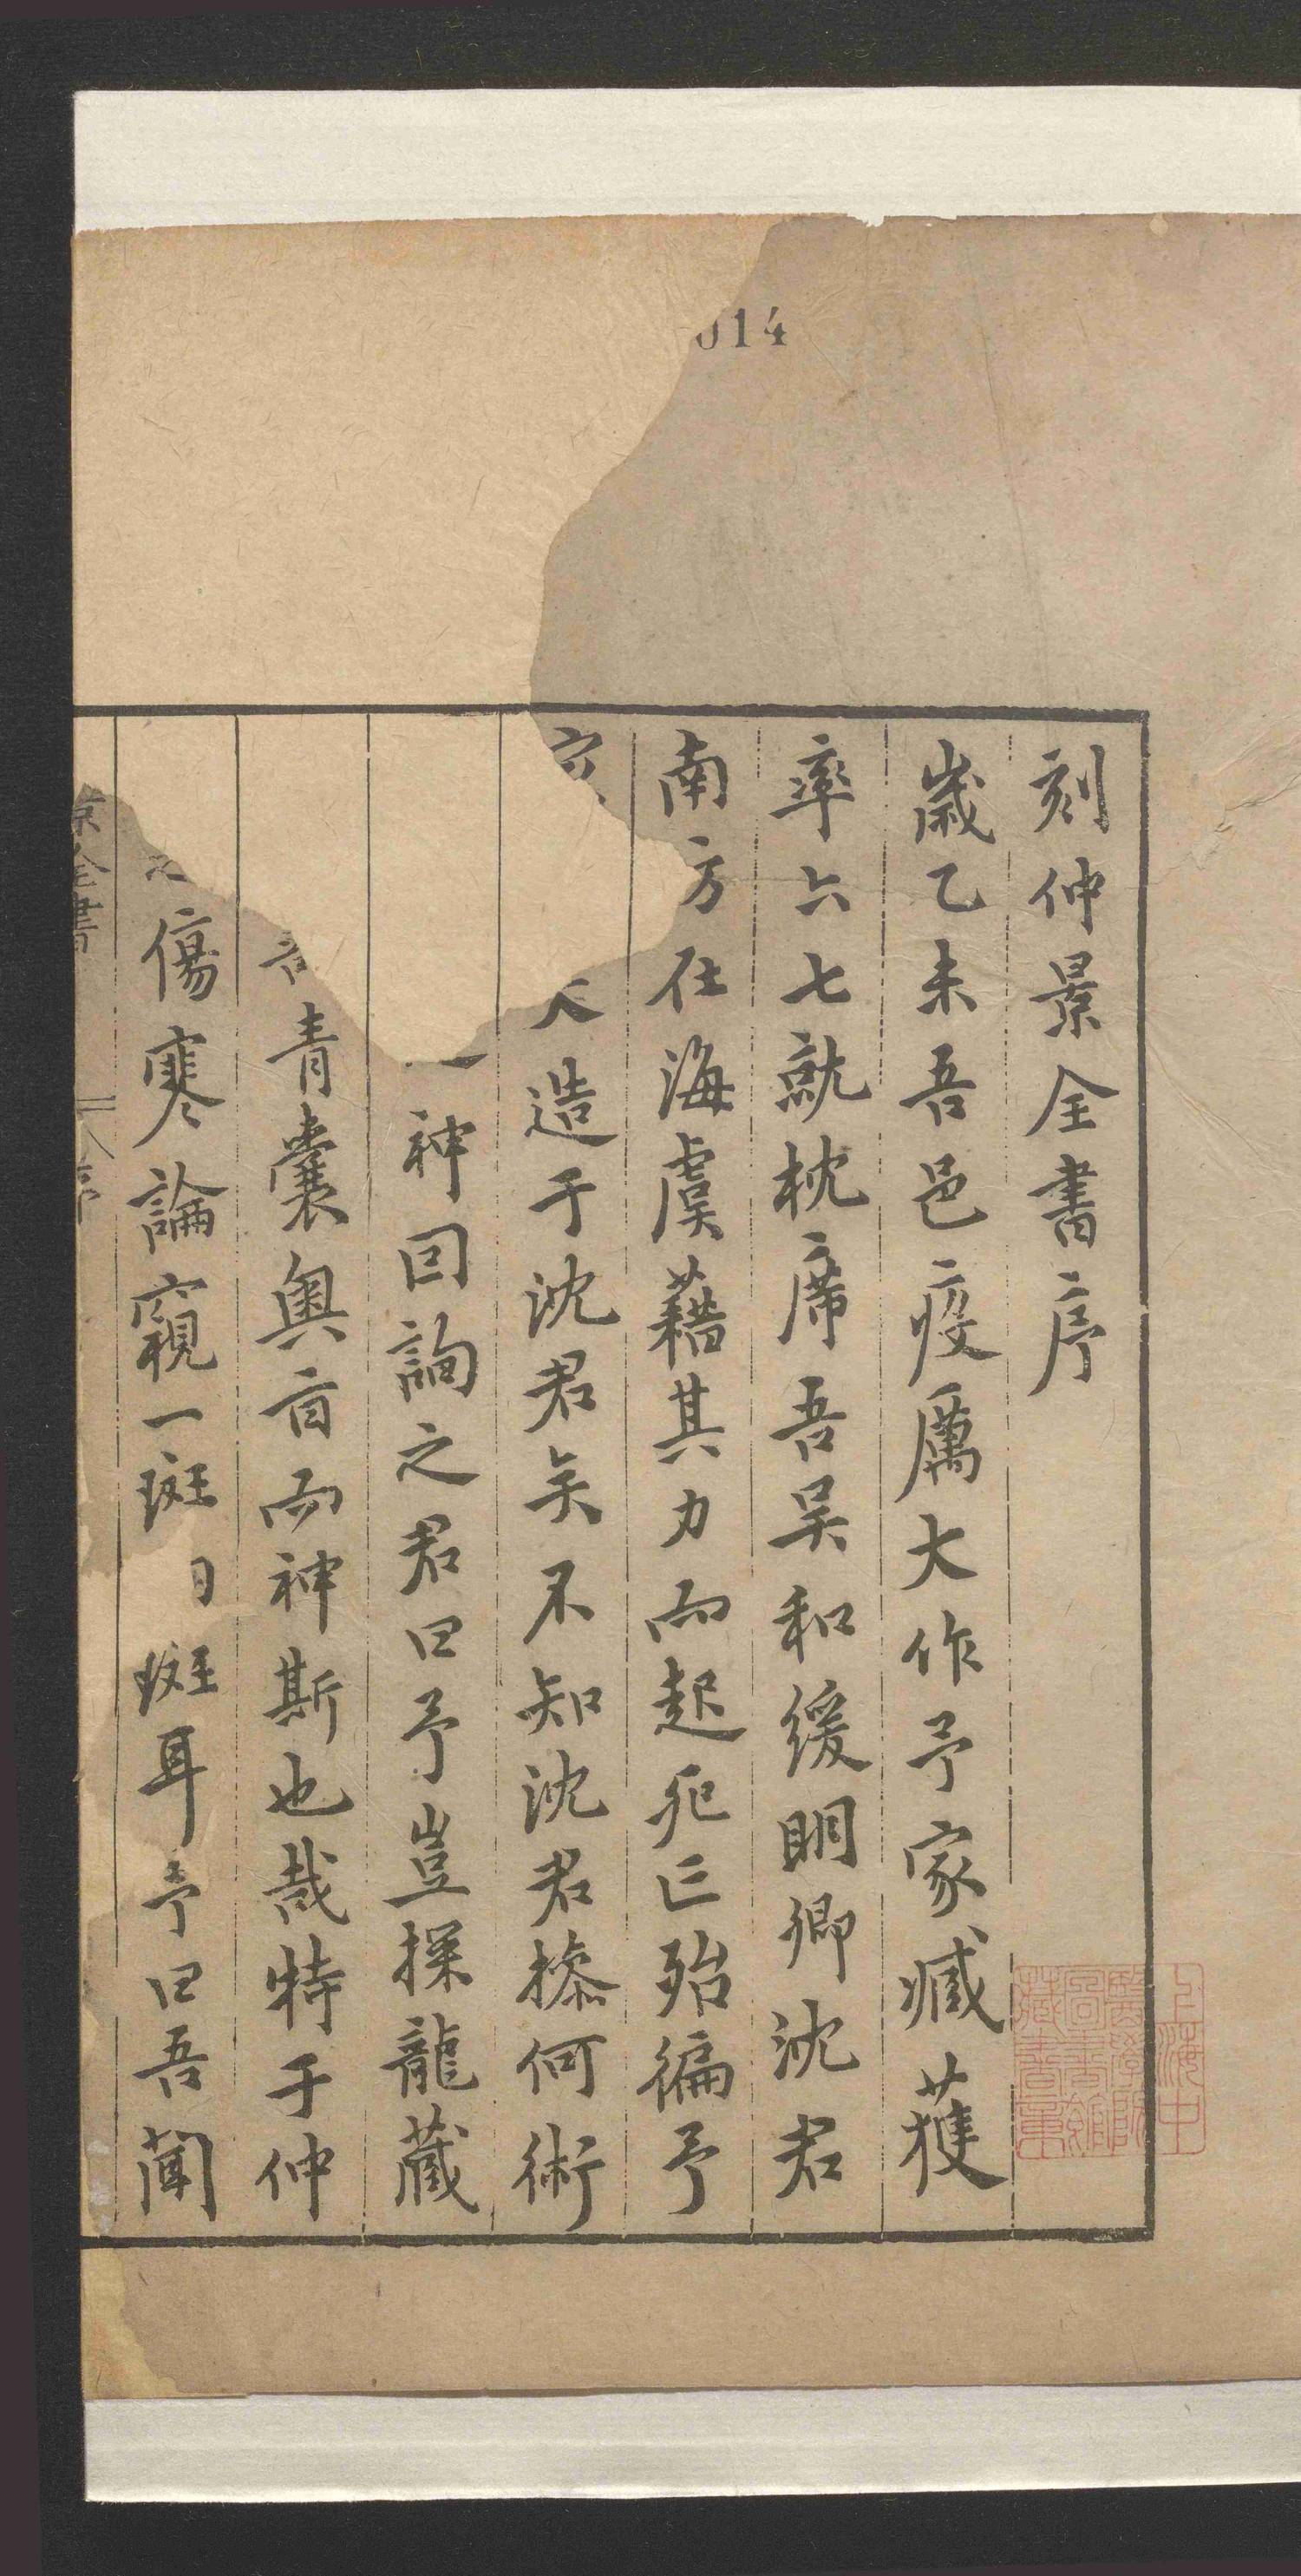 刻仲景全書序
歲乙未吾邑疫厲大作予家臧獲
率六七就枕席吾吴和緩明卿沈君
南方仕海虞藉其力而起死亡殆徧予
大造于沈君矣不知沈君操何術
神因詢之君曰予豈探龍藏
青囊奥旨而神斯也哉特于仲
傷寒論窺一斑斑耳予曰吾聞
全書
序
014
上海中
醫學院
圖書館
藏書章